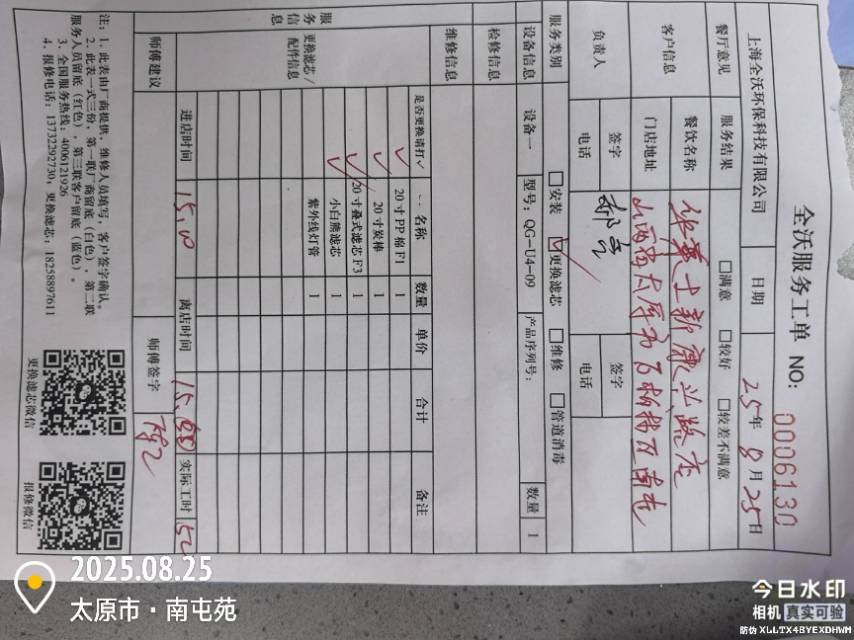 全沃服务工单 NO: 0006130
上海全沃环保科技有限公司 日期 25年8月25日
餐厅意见 服务结果 □满意 □较好 □较差不满意
客户信息 餐饮名称 店
门店地址 山西省太原市
负责人 签字 签字
电话 电话
服务类别 □安装 ☑更换滤芯 □维修 □管道消毒
设备信息 设备一 型号: QG-U4-09 产品序列号: 数量 1
检修信息
维修信息
服务信息
更换滤芯/配件信息 是否更换请打✓ 名称 数量 单价 合计 备注
✓ 20寸PP棉F1 1
✓ 20寸炭棒 1
✓ 20寸叠式滤芯F3 1
✓ 小白熊滤芯 1
紫外线灯管 1
进店时间 15.10 离店时间 实际工时
师傅建议 师傅签字
注: 1. 此表由厂商提供, 维修人员填写, 客户签字确认。
2. 此表一式三份, 第一联厂商留底 (白色), 第二联
服务人员留底 (红色), 第三联客户留底 (蓝色)。
3. 全国服务热线: 4006121926
4. 报修电话: 13732292730, 更换滤芯: 18258897611
更换滤芯微信 报修微信
2025.08.25
太原市·南屯苑
今日水印
相机 真实可验
防伪 XLLTX4BYEXDHWM